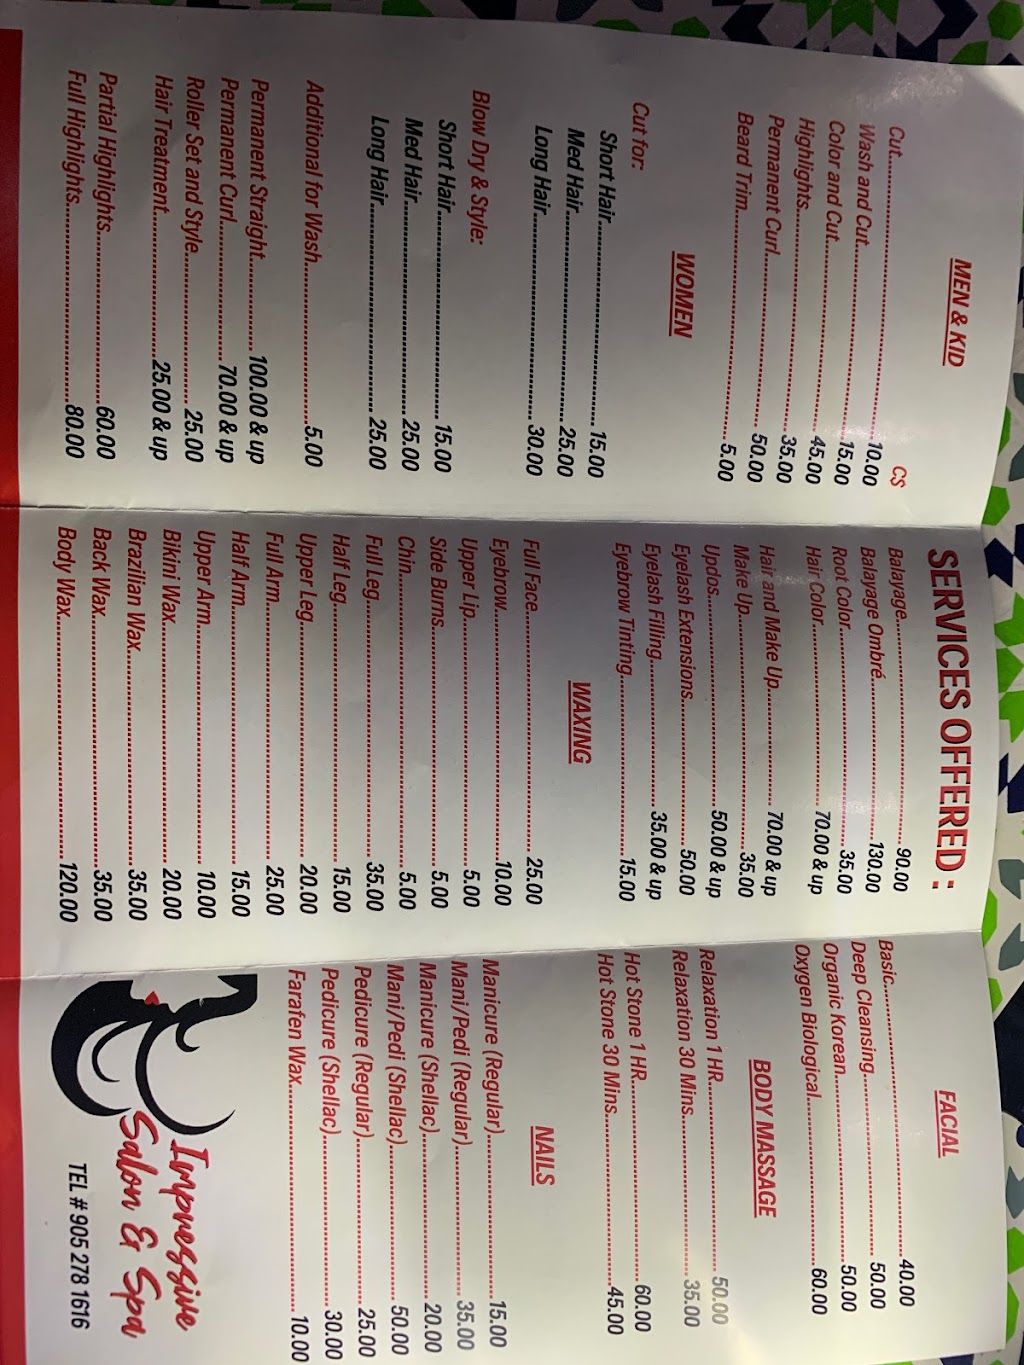 SERVICES OFFERED :
MEN & KID
C$
Cut..........10.00
Wash and Cut..........15.00
Color and Cut..........45.00
Highlights..........35.00
Permanent Curl..........50.00
Beard Trim..........5.00
WOMEN
Cut for:
Short Hair..........15.00
Med Hair..........25.00
Long Hair..........30.00
Blow Dry & Style:
Short Hair..........15.00
Med Hair..........25.00
Long Hair..........25.00
Additional for Wash..........5.00
Permanent Straight..........100.00 & up
Permanent Curl..........70.00 & up
Roller Set and Style..........25.00
Hair Treatment..........25.00 & up
Partial Highlights..........60.00
Full Highlights..........80.00
Balayage..........90.00
Balayage Ombré..........130.00
Root Color..........35.00
Hair Color..........70.00 & up
Hair and Make Up..........70.00 & up
Make Up..........35.00
Updos..........50.00 & up
Eyelash Extensions..........50.00
Eyelash Filling..........35.00 & up
Eyebrow Tinting..........15.00
WAXING
Full Face..........25.00
Eyebrow..........10.00
Upper Lip..........5.00
Side Burns..........5.00
Chin..........5.00
Full Leg..........35.00
Half Leg..........15.00
Upper Leg..........20.00
Full Arm..........25.00
Half Arm..........15.00
Upper Arm..........10.00
Bikini Wax..........20.00
Brazilian Wax..........35.00
Back Wax..........35.00
Body Wax..........120.00
FACIAL
Basic..........40.00
Deep Cleansing..........50.00
Organic Korean..........50.00
Oxygen Biological..........60.00
BODY MASSAGE
Relaxation 1 HR..........50.00
Relaxation 30 Mins..........35.00
Hot Stone 1 HR..........60.00
Hot Stone 30 Mins..........45.00
NAILS
Manicure (Regular)..........15.00
Mani/Pedi (Regular)..........35.00
Manicure (Shellac)..........20.00
Mani/Pedi (Shellac)..........50.00
Pedicure (Regular)..........25.00
Pedicure (Shellac)..........30.00
Farafen Wax..........10.00
Impressive
Salon & Spa
TEL # 905 278 1616